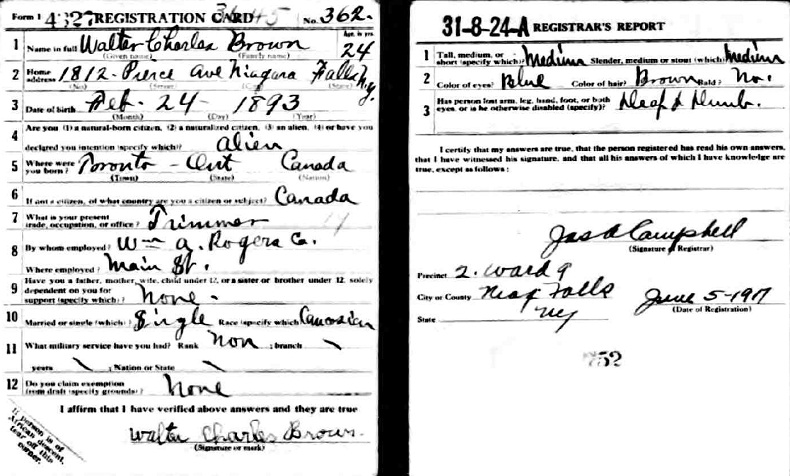 Form 1 4327 REGISTRATION CARD 3645 No. 362.
1 Name in full Walter Charles Brown Age, in yrs. 24
(Given name) (Family name)
2 Home address 1812 - Pierce Ave Niagara Falls N.y.
(No.) (Street) (City) (State)
3 Date of birth Feb. 24 - 1893
(Month) (Day) (Year)
4 Are you (1) a natural-born citizen, (2) a naturalized citizen, (3) an alien, (4) or have you
declared your intention (specify which)? alien
5 Where were you born? Toronto - Ont Canada
(Town) (State) (Nation)
6 If not a citizen, of what country are you a citizen or subject? Canada
7 What is your present trade, occupation, or office? Trimmer
8 By whom employed? Wm A. Rogers Co.
Where employed? Main St.
9 Have you a father, mother, wife, child under 12, or a sister or brother under 12, solely
dependent on you for support (specify which)? None.
10 Married or single (which)? Single Race (specify which)? Caucasian
11 What military service have you had? Rank Non ; branch \
years \ ; Nation or State \
12 Do you claim exemption from draft (specify grounds)? None
I affirm that I have verified above answers and they are true
Walter Charles Brown.
(Signature or mark)
If person is of
African descent,
tear off this
corner.
31-8-24-A REGISTRAR'S REPORT
1 Tall, medium, or short (specify which)? Medium Slender, medium or stout (which)? Medium
2 Color of eyes? Blue Color of hair? Brown Bald? No.
3 Has person lost arm, leg, hand, foot, or both
eyes, or is he otherwise disabled (specify)? Deaf & Dumb.
I certify that my answers are true, that the person registered has read his own answers,
that I have witnessed his signature, and that all his answers of which I have knowledge are
true, except as follows:
Jas A Campbell
(Signature of Registrar)
Precinct 2. Ward 9
City or County Niag Falls
State Ny
June 5-1917
(Date of Registration)
752